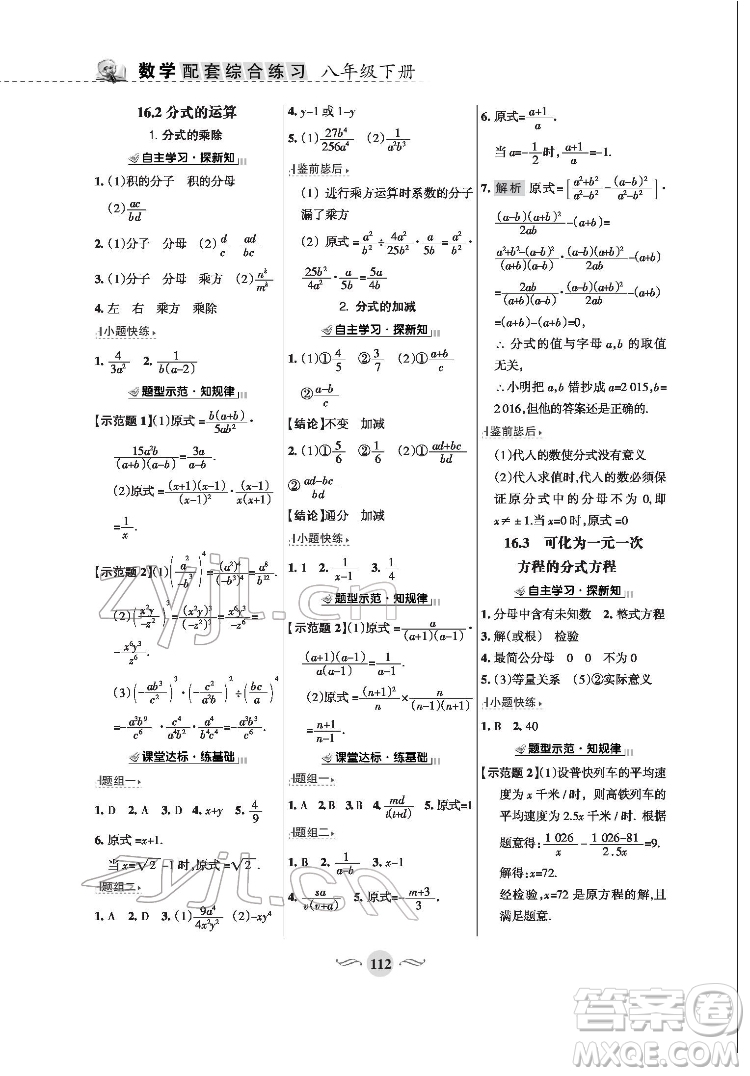 数学 配套综合练习 八年级下册
16.2 分式的运算
1. 分式的乘除
自主学习·探新知
1. (1)积的分子 积的分母
(2)ac/bd
2. (1)分子 分母 (2)d/c ad/bc
3. (1)分子 分母 乘方 (2)n^k/m^k
4. 左 右 乘方 乘除
小题快练
1. 4/3a² 2. 1/b(a-2)
题型示范·知规律
【示范题1】(1)原式=b(a+b)/5ab²·
15a²b/(a+b)(a-b)=3a/a-b
(2)原式=(x+1)(x-1)/(x-1)²·(x-1)/x(x+1)=
1/x
【示范题2】(1)(a²/-b³)⁴=(a²)⁴/(-b³)⁴=a⁸/b¹²
(2)(x²y/-z²)³=(x²y)³/(-z²)³=x⁶y³/-z⁶=
-x⁶y³/z⁶
(3)(-ab³/c²)³·(c²/a²b)²÷(bc/a)⁴
=-a³b⁹/c⁶·c⁴/a⁴b²·a⁴/b⁴c⁴=-a³b³/c⁶
课堂达标·练基础
题组一
1. D 2. A 3. D 4. x+y 5. 4/9
6. 原式=x+1.
当x=√2-1时,原式=√2.
题组二
1. A 2. D 3. (1)9a⁴/4x²y² (2)-xy⁴
4. y-1或1-y
5. (1)27b⁴/256a⁴ (2)1/a²b³
鉴前毖后
(1)进行乘方运算时系数的分子
漏了乘方
(2)原式=a²/b²÷4a²/25b²·a/5b=a²/b²·
25b²/4a²·a/5b=5a/4b
2. 分式的加减
自主学习·探新知
1. (1)①4/5 ②3/7 (2)①a+b/c
②a-b/c
【结论】不变 加减
2. (1)①5/6 ②1/6 (2)①ad+bc/bd
②ad-bc/bd
【结论】通分 加减
小题快练
1. 1 2. 1/x-1 3. A
题型示范·知规律
【示范题2】(1)原式=a/(a+1)(a-1)·
(a+1)(a-1)/a(a-1)=1/a-1
(2)原式=(n+1)²/n×n/(n-1)(n+1)
=n+1/n-1.
课堂达标·练基础
题组一
1. D 2. A 3. A 4. md/t(t+d) 5. 原式=1
题组二
1. B 2. 1/a-b 3. x-1
4. sa/v(v+a) 5. 原式=-m+3/2.
6. 原式=a+1/a.
当a=-1/2时,a+1/a=-1.
7. 解析 原式=[a²+b²/a²-b²-(a-b)²/a²-b²]·
(a-b)(a+b)²/2ab-(a+b)=
a²+b²-(a-b)²/(a+b)(a-b)·(a-b)(a+b)²/2ab-(a+b)=
2ab/(a+b)(a-b)·(a-b)(a+b)²/2ab-(a+b)
=(a+b)-(a+b)=0,
∴分式的值与字母a,b的取值
无关,
∴小明把a,b错抄成a=2 015,b=
2 016,但他的答案还是正确的.
鉴前毖后
(1)代入的数使分式没有意义
(2)代入求值时,代入的数必须保
证原分式中的分母不为0,即
x≠±1.当x=0时,原式=0
16.3 可化为一元一次
方程的分式方程
自主学习·探新知
1. 分母中含有未知数 2. 整式方程
3. 解(或根) 检验
4. 最简公分母 0 0 不为0
5. (3)等量关系 (5)②实际意义
小题快练
1. B 2. 40
题型示范·知规律
【示范题2】(1)设普快列车的平均速
度为x千米/时,则高铁列车的平
均速度为2.5x千米/时,根据
题意得:1 026/x-1 026-81/2.5x=9.
解得:x=72
经检验,x=72是原方程的解,且
满足题意.
112
zyjl.cn
zyjl.cn
答案圈
MXQE.COM